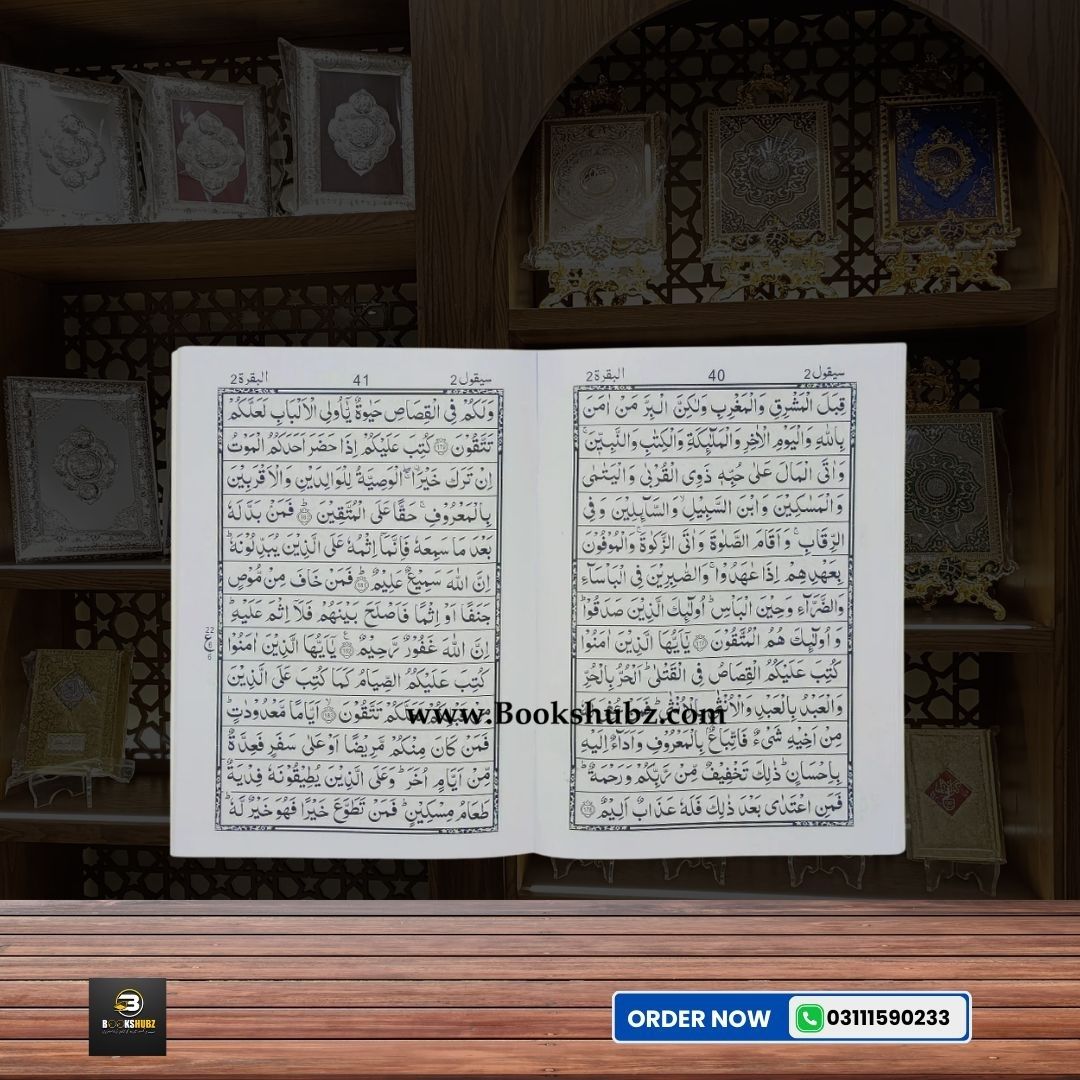 سيقول 2 40 البقرة 2
قِبَلَ الْمَشْرِقِ وَالْمَغْرِبِ وَلٰكِنَّ الْبِرَّ مَنْ اٰمَنَ
بِاللّٰهِ وَالْيَوْمِ الْاٰخِرِ وَالْمَلٰٓئِكَةِ وَالْكِتٰبِ وَالنَّبِيّٖنَ ۚ
وَاٰتَى الْمَالَ عَلٰى حُبِّهٖ ذَوِى الْقُرْبٰى وَالْيَتٰمٰى
وَالْمَسٰكِيْنَ وَابْنَ السَّبِيْلِ ۙ وَالسَّآئِلِيْنَ وَفِى
الرِّقَابِ ۚ وَاَقَامَ الصَّلٰوةَ وَاٰتَى الزَّكٰوةَ ۚ وَالْمُوْفُوْنَ
بِعَهْدِهِمْ اِذَا عٰهَدُوْا ۚ وَالصّٰبِرِيْنَ فِى الْبَاْسَآءِ
وَالضَّرَّآءِ وَحِيْنَ الْبَاْسِ ؕ اُولٰٓئِكَ الَّذِيْنَ صَدَقُوْا ؕ
وَ اُولٰٓئِكَ هُمُ الْمُتَّقُوْنَ ﴿۱۷۷﴾ يٰٓاَيُّهَا الَّذِيْنَ اٰمَنُوْا
كُتِبَ عَلَيْكُمُ الْقِصَاصُ فِى الْقَتْلٰى ؕ اَلْحُرُّ بِالْحُرِّ
وَالْعَبْدُ بِالْعَبْدِ وَالْاُنْثٰى بِالْاُنْثٰى ؕ
مِنْ اَخِيْهِ شَىْءٌ فَاتِّبَاعٌۢ بِالْمَعْرُوْفِ وَاَدَآءٌ اِلَيْهِ
بِاِحْسَانٍ ؕ ذٰلِكَ تَخْفِيْفٌ مِّنْ رَّبِّكُمْ وَرَحْمَةٌ ؕ
فَمَنِ اعْتَدٰى بَعْدَ ذٰلِكَ فَلَهٗ عَذَابٌ اَلِيْمٌ ﴿۱۷۸﴾
سيقول 2 41 البقرة 2
وَلَكُمْ فِى الْقِصَاصِ حَيٰوةٌ يّٰٓاُولِى الْاَلْبَابِ لَعَلَّكُمْ
تَتَّقُوْنَ ﴿۱۷۹﴾ كُتِبَ عَلَيْكُمْ اِذَا حَضَرَ اَحَدَكُمُ الْمَوْتُ
اِنْ تَرَكَ خَيْرَا ۖۚ الْوَصِيَّةُ لِلْوَالِدَيْنِ وَالْاَقْرَبِيْنَ
بِالْمَعْرُوْفِ ۚ حَقًّا عَلَى الْمُتَّقِيْنَ ﴿۱۸۰﴾ فَمَنْۢ بَدَّلَهٗ
بَعْدَ مَا سَمِعَهٗ فَاِنَّمَآ اِثْمُهٗ عَلَى الَّذِيْنَ يُبَدِّلُوْنَهٗ ؕ
اِنَّ اللّٰهَ سَمِيْعٌ عَلِيْمٌ ﴿۱۸۱﴾ فَمَنْ خَافَ مِنْ مُّوْصٍ
جَنَفًا اَوْ اِثْمًا فَاَصْلَحَ بَيْنَهُمْ فَلَآ اِثْمَ عَلَيْهِ ؕ
اِنَّ اللّٰهَ غَفُوْرٌ رَّحِيْمٌ ﴿۱۸۲﴾ يٰٓاَيُّهَا الَّذِيْنَ اٰمَنُوْا
كُتِبَ عَلَيْكُمُ الصِّيَامُ كَمَا كُتِبَ عَلَى الَّذِيْنَ
تَتَّقُوْنَ ﴿۱۸۳﴾ اَيَّامًا مَّعْدُوْدٰتٍ ؕ
فَمَنْ كَانَ مِنْكُمْ مَّرِيْضًا اَوْ عَلٰى سَفَرٍ فَعِدَّةٌ
مِّنْ اَيَّامٍ اُخَرَ ؕ وَعَلَى الَّذِيْنَ يُطِيْقُوْنَهٗ فِدْيَةٌ
طَعَامُ مِسْكِيْنٍ ؕ فَمَنْ تَطَوَّعَ خَيْرًا فَهُوَ خَيْرٌ لَّهٗ ؕ
22
ع
6
6
www.Bookshubz.com
BOOKSHUBZ
ORDER NOW 03111590233